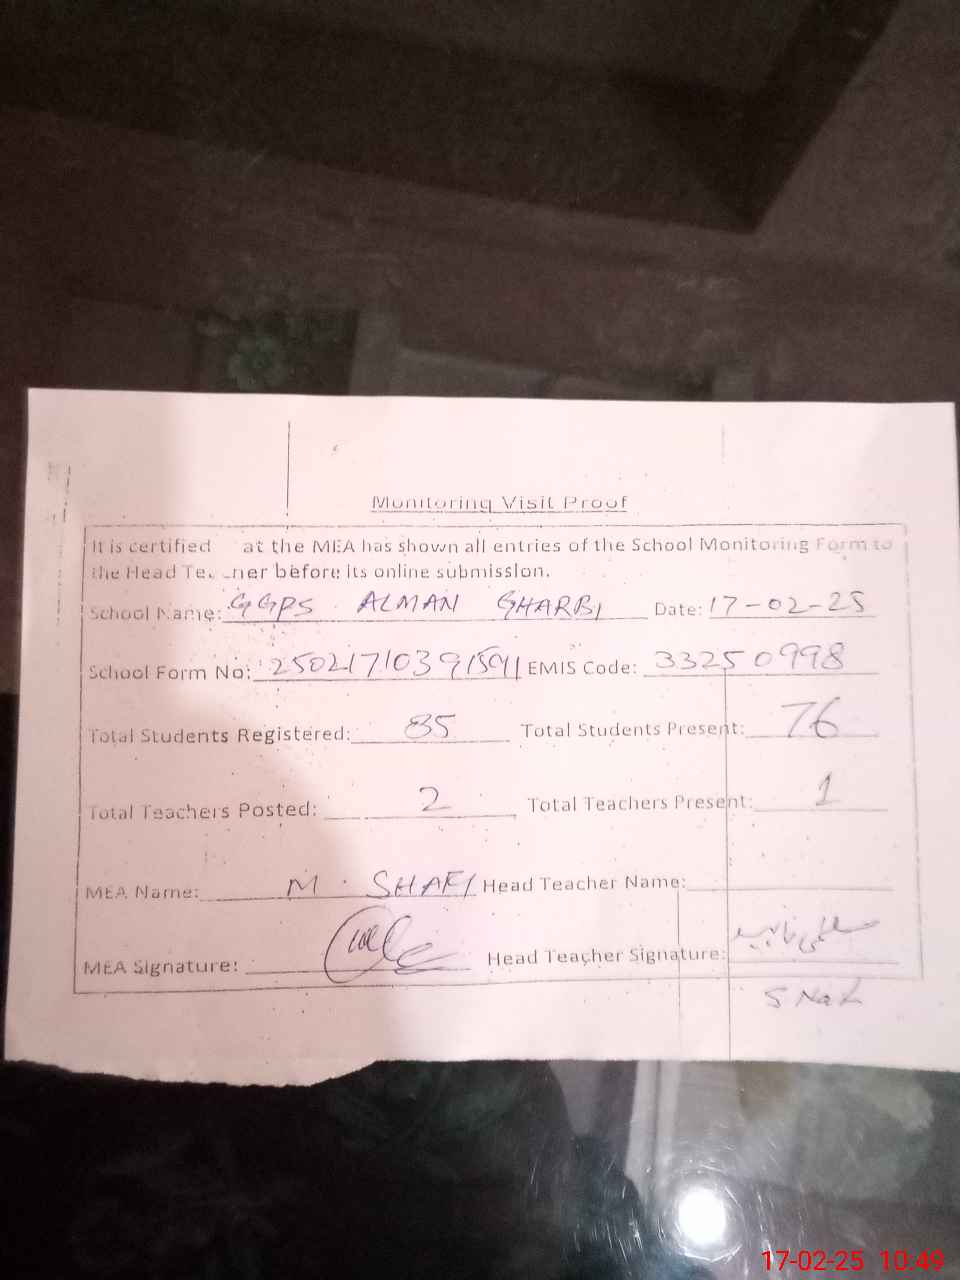 Monitoring Visit Proof
It is certified at the MEA has shown all entries of the School Monitoring Form to
the Head Te ner before its online submission.
School Name: GGPS ALMAN GHARBI Date: 17-02-25
School Form No: 25021710391591 EMIS Code: 33250998
Total Students Registered: 85 Total Students Present: 76
Total Teachers Posted: 2 Total Teachers Present: 1
MEA Name: M. SHAFI Head Teacher Name:
MEA Signature: Head Teacher Signature:
17-02-25 10:49